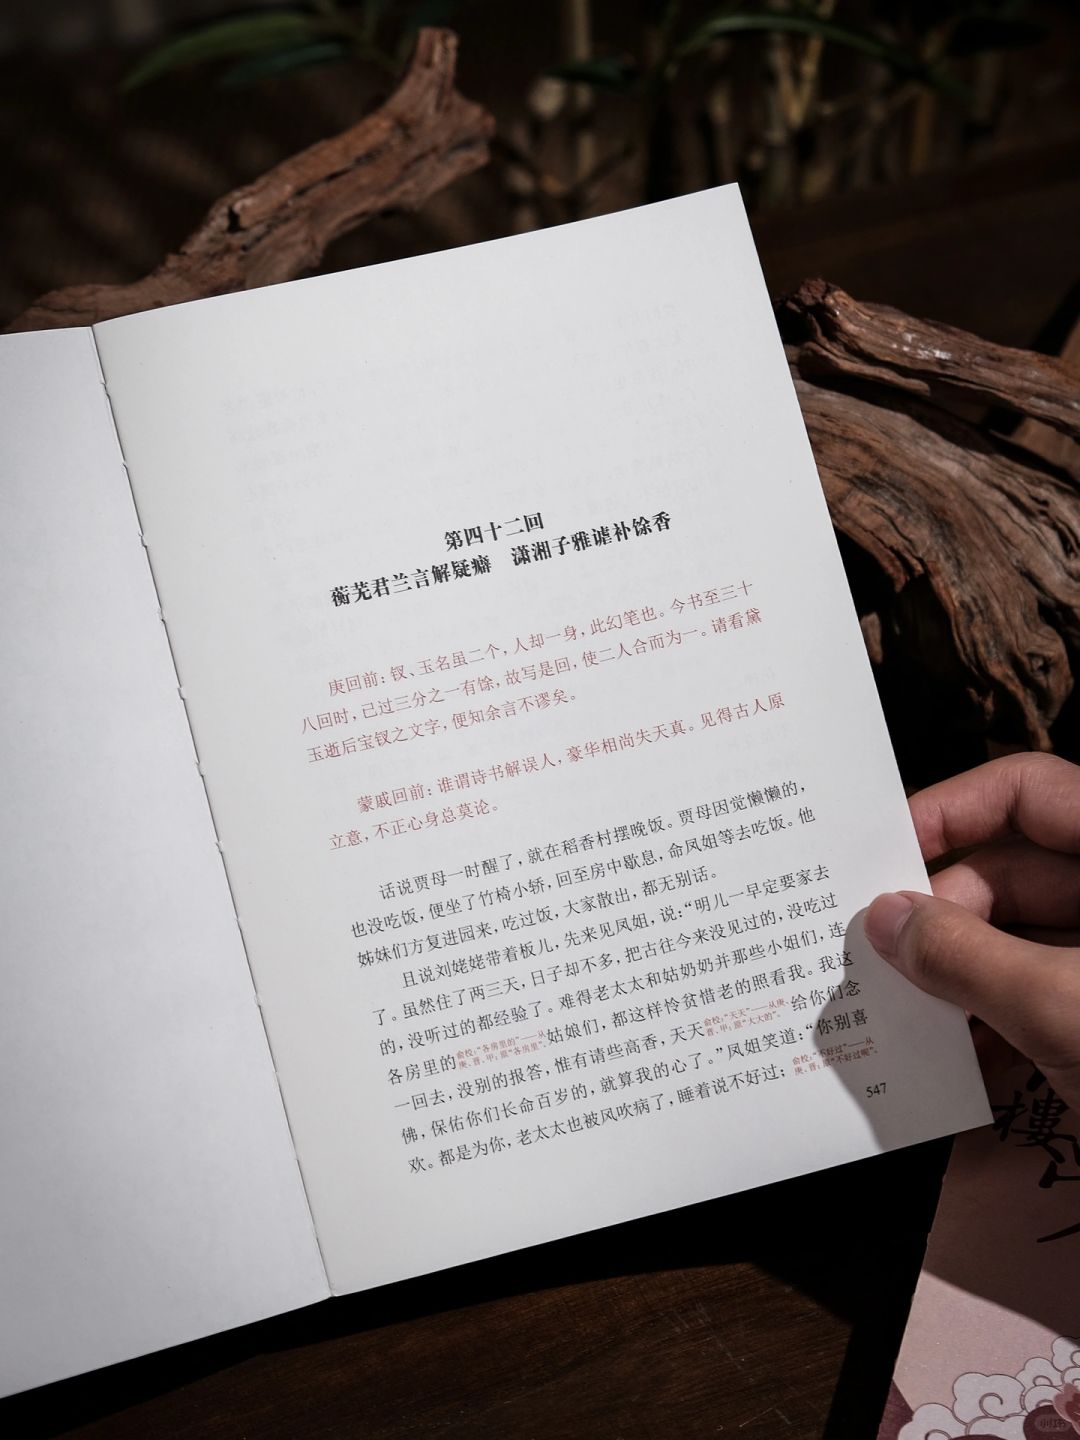 第四十二回
蘅芜君兰言解疑癖　潇湘子雅谑补馀香
庚回前：钗、玉名虽二个，人却一身，此幻笔也。今书至三十
八回时，已过三分之一有馀，故写是回，使二人合而为一。请看黛
玉逝后宝钗之文字，便知余言不谬矣。
蒙戚回前：谁谓诗书解误人，豪华相尚失天真。见得古人原
立意，不正心身总莫论。
话说贾母一时醒了，就在稻香村摆晚饭。贾母因觉懒懒的，
也没吃饭，便坐了竹椅小轿，回至房中歇息，命凤姐等去吃饭。他
姊妹们方复进园来，吃过饭，大家散出，都无别话。
且说刘姥姥带着板儿，先来见凤姐，说：“明儿一早定要家去
了。虽然住了两三天，日子却不多，把古往今来没见过的，没吃过
的，没听过的都经验了。难得老太太和姑奶奶并那些小姐们，连
各房里的俞校：“各房里的”——从庚、晋、甲；原“各房里”。姑娘们，都这样怜贫惜老的照看我。我这
一回去，没别的报答，惟有请些高香，天天俞校：“天天”——从庚、晋、甲；原“大大的”。给你们念
佛，保佑你们长命百岁的，就算我的心了。”凤姐笑道：“你别喜
欢。都是为你，老太太也被风吹病了，睡着说不好过；俞校：“不好过”——从庚、晋；原“不好过呢”。
547
樓